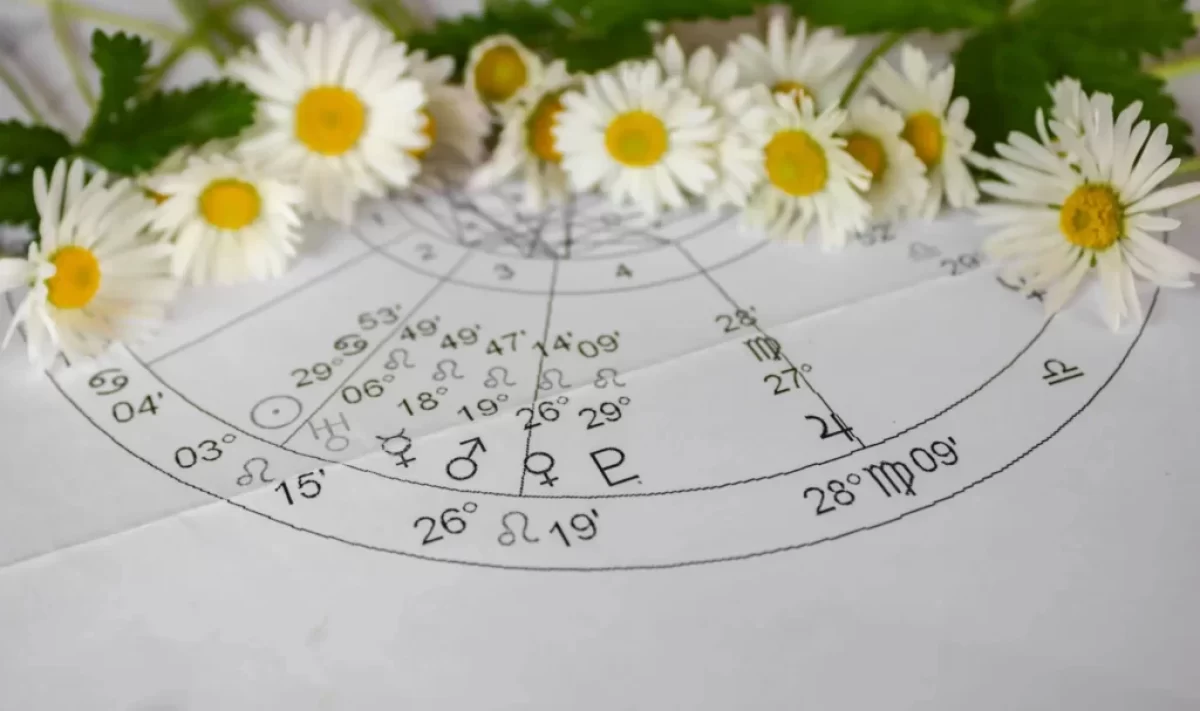 2
3
4
29° ♋ 53'
06° ♌ 49'
18° ♌ 49'
19° ♌ 47'
26° ♌ 14'
29° ♌ 09'
27° ♍ 28'
29°
☉ ♅ ☿ ♂ ♀ ♇ ♃
♋ 04'
03° ♌ 15'
26° ♌ 19'
28° ♍ 09'
♎